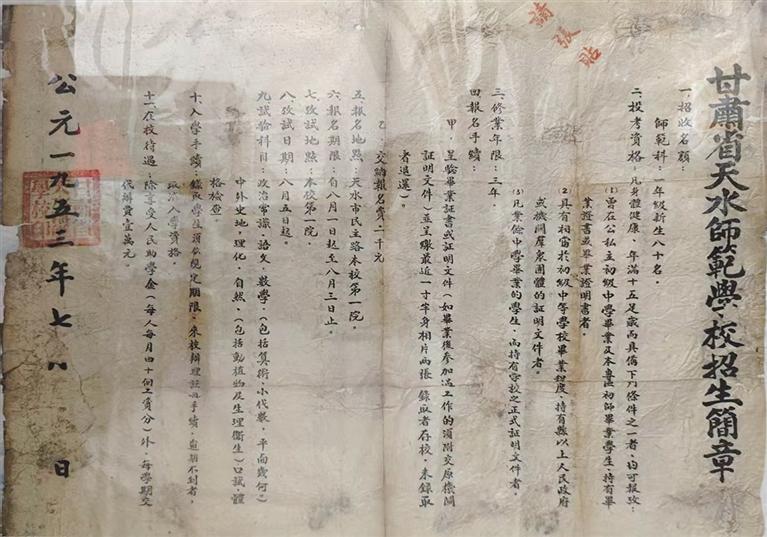 請張貼
甘肅省天水師範學校招生簡章
一、招收名額：
師範科：一年級新生八十名。
二、投考資格：凡身體健康、年滿十五足歲而具備下列條件之一者、均可報攷：
(1)曾在公私立初級中學畢業及本專區初師畢業學生、持有畢
業證書或畢業證明書者。
(2)具有相當於初級中等學校畢業程度、持有縣以上人民政府
或機關羣衆團體的証明文件者。
(3)凡業餘中學畢業的學生、而持有學校之正式証明文件者。
三、修業年限：三年。
四、報名手續：
甲、呈驗畢業証書或証明文件（如畢業後參加過工作的須附交原機關
証明文件）並呈繳最近一寸半身相片兩張（錄取者存校，未錄取
者退還）。
乙、交納報名費二千元
五、報名地點：天水市民主路本校第一院。
六、報名期限：自八月一日起至八月三日止。
七、攷試地點：本校第一院。
八、攷試日期：八月五日起。
九、試驗科目：政治常識、語文、數學、（包括算術、小代數、平面幾何）
中外史地，理化，自然，（包括動植物及生理衞生）口試，體
格檢查。
十、入學手續：錄取學生須在規定期限，來校辦理註册手續，逾期不到者，
取消入學資格。
十一、在校待遇：除享受人民助學金（每人每月四十個工資分）外，每學期交
代辦費壹萬元。
公元一九五三年七月　日